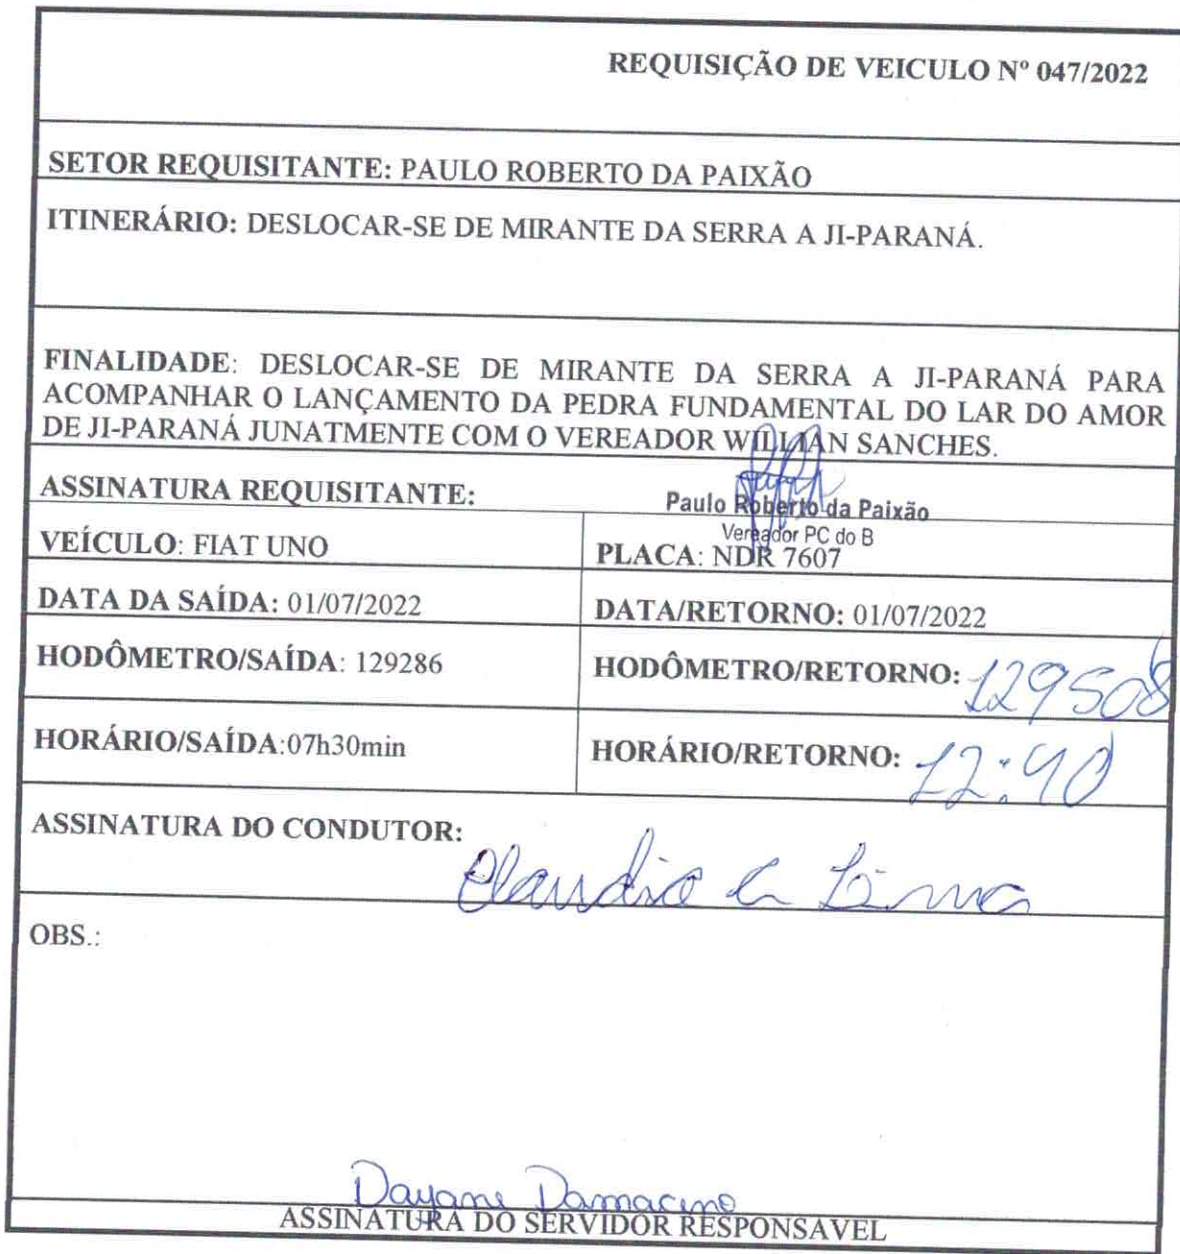 REQUISIÇÃO DE VEICULO Nº 047/2022
SETOR REQUISITANTE: PAULO ROBERTO DA PAIXÃO
ITINERÁRIO: DESLOCAR-SE DE MIRANTE DA SERRA A JI-PARANÁ.
FINALIDADE: DESLOCAR-SE DE MIRANTE DA SERRA A JI-PARANÁ PARA
ACOMPANHAR O LANÇAMENTO DA PEDRA FUNDAMENTAL DO LAR DO AMOR
DE JI-PARANÁ JUNATMENTE COM O VEREADOR WILLIAN SANCHES.
ASSINATURA REQUISITANTE:
Paulo Roberto da Paixão
Vereador PC do B
VEÍCULO: FIAT UNO
PLACA: NDR 7607
DATA DA SAÍDA: 01/07/2022
DATA/RETORNO: 01/07/2022
HODÔMETRO/SAÍDA: 129286
HODÔMETRO/RETORNO: 129508
HORÁRIO/SAÍDA:07h30min
HORÁRIO/RETORNO: 12:40
ASSINATURA DO CONDUTOR:
Claudio G Lima
OBS.:
Dayane Damaceno
ASSINATURA DO SERVIDOR RESPONSAVEL